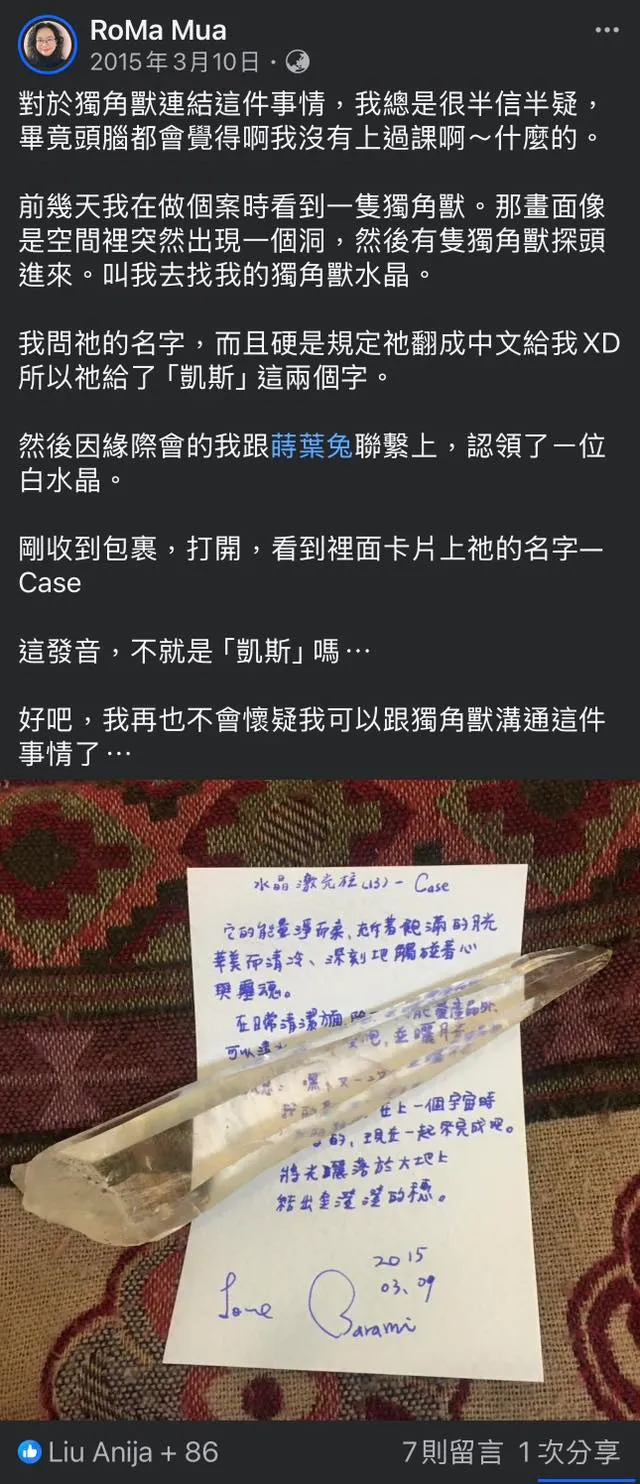 RoMa Mua
2015年3月10日
對於獨角獸連結這件事情，我總是很半信半疑，
畢竟頭腦都會覺得啊我沒有上過課啊～什麼的。
前幾天我在做個案時看到一隻獨角獸。那畫面像
是空間裡突然出現一個洞，然後有隻獨角獸探頭
進來。叫我去找我的獨角獸水晶。
我問祂的名字，而且硬是規定祂翻成中文給我XD
所以祂給了「凱斯」這兩個字。
然後因緣際會的我跟蒔葉兔聯繫上，認領了一位
白水晶。
剛收到包裹，打開，看到裡面卡片上祂的名字—
Case
這發音，不就是「凱斯」嗎⋯
好吧，我再也不會懷疑我可以跟獨角獸溝通這件
事情了⋯
水晶激光柱(13) - Case
它的能量淨而柔、有著飽滿的月光
華美而清冷、深刻地觸碰著心
與靈魂。
在日常清潔方面 能量產品外
可以
在上一個宇宙時
的，現在一起來完成吧。
將光曬落於大地上
結出金澄澄的穗。
2015
03.09
Love Barami
Liu Anija + 86
7則留言 1次分享